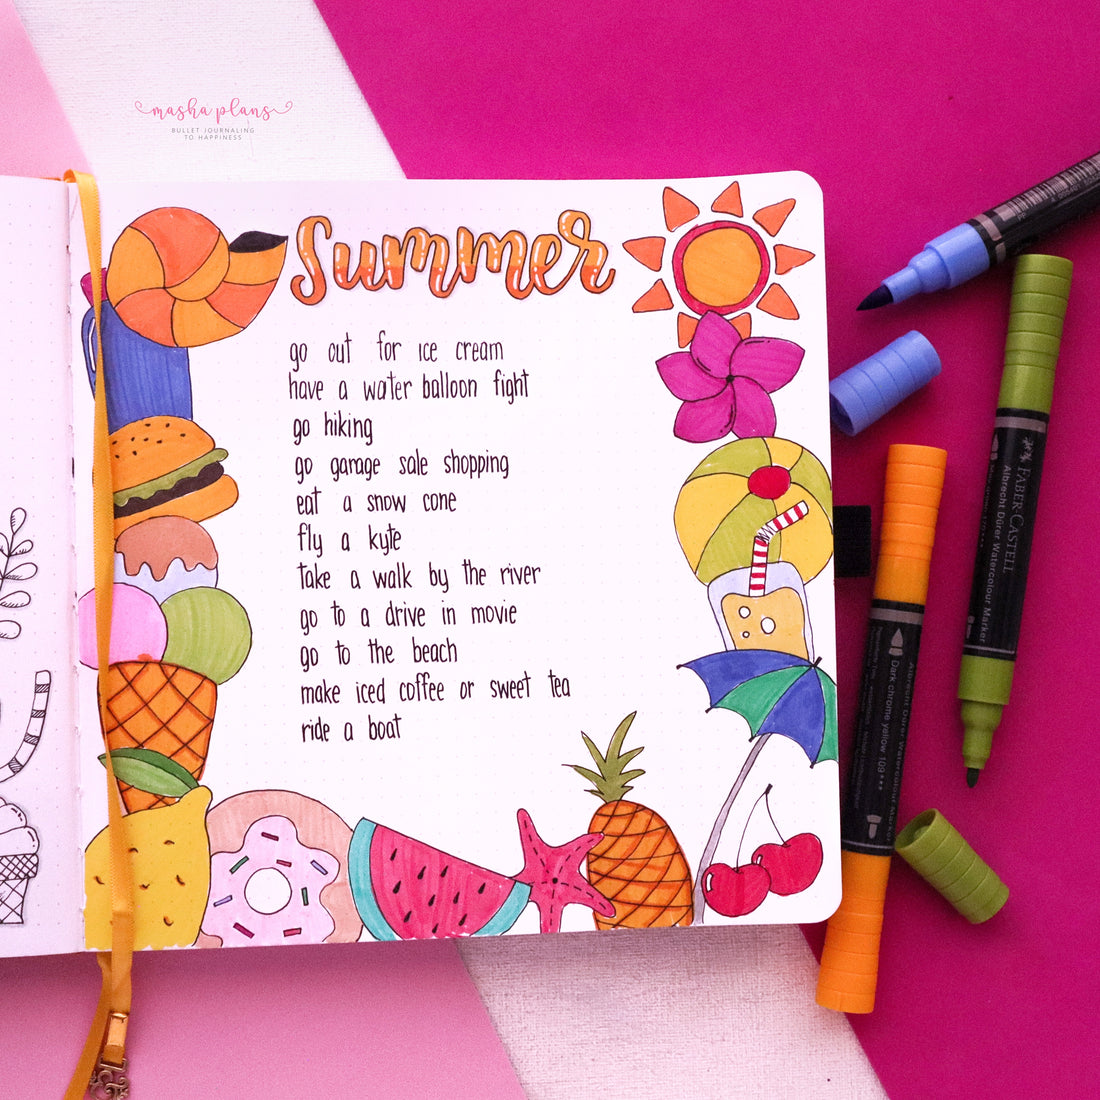 masha plans
BULLET JOURNALING
TO HAPPINESS
Summer
go out for ice cream
have a water balloon fight
go hiking
go garage sale shopping
eat a snow cone
fly a kyte
take a walk by the river
go to a drive in movie
go to the beach
make iced coffee or sweet tea
ride a boat
FABER-CASTELL
Albrecht Dürer Watercolour Marker
Albrecht Dürer Watercolour Marker
Dark chrome yellow 109***